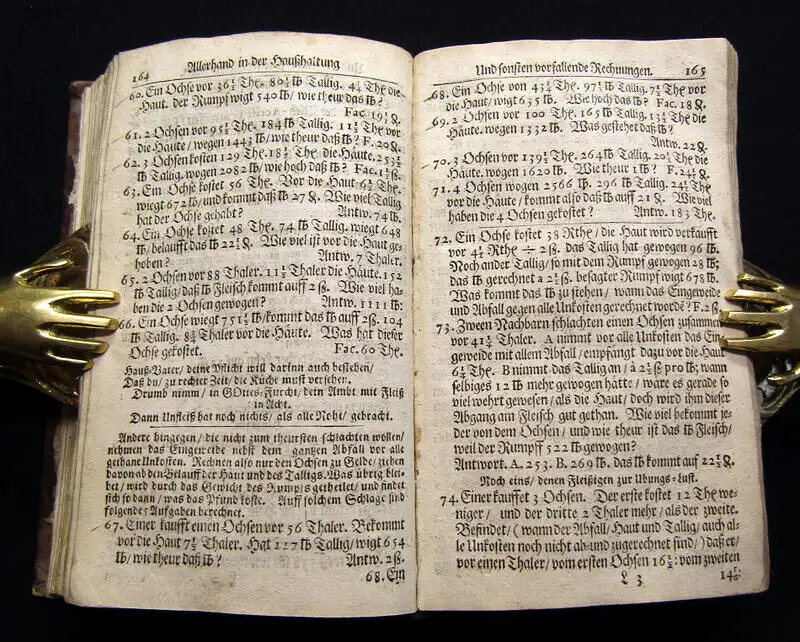 164 Allerhand in der Haußhaltung
60. Ein Ochse vor 36½ The. 80½ ℔ Tallig. 4¼ The die
Haut. der Rumpf wigt 540 ℔/ wie theur das ℔?
Fac. 19
61. 2 Ochsen vor 95½ The. 184 ℔ Tallig. 11½ The vor
die Häute/ wegen 1443 ℔/ wie theur daß ℔? F. 20 ₰.
62. 3 Ochsen kosten 129 The. 18 The die Häute. 253½
℔ Tallig. wogen 2082 ℔/ wie hoch daß ℔? Fac. 1 ß.
63. Ein Ochse kostet 56 The. Vor die Haut 6 The.
wiegt 672 ℔/ und kommt daß ℔ 27 ₰. Wie viel Tallig
hat der Ochse gehabt? Antw. 74 ℔.
64. Ein Ochse kostet 48 The. 74 ℔ Tallig. wiegt 648
℔/ belaufft das ℔ 22½ ₰. Wie viel ist vor die Haut ge-
hoben? Antw. 7 Thaler.
65. 2 Ochsen vor 88 Thaler. 11½ Thaler die Häute. 152
℔ Tallig/ daß ℔ Fleisch kommt auff 2 ß. Wie viel ha-
ben die 2 Ochsen gewogen? Antw. 1111 ℔:
66. Ein Ochse wiegt 751½ ℔/ kommt das ℔ auff 2 ß. 104
℔ Tallig. 8 Thaler vor die Häute. Was hat dieser
Ochse gekostet. Fac. 60 The.
Hauß-Vater/ deine Pflicht will darinn auch bestehen/
Daß du/ zu rechter Zeit/ die Küche must versehen.
Drumb nimm/ in GOttes-Furcht/ dein Ambt mit Fleiß
in Acht.
Dann Unfleiß hat noch nichts/ als alle Noht/ gebracht.
Andere hingegen/ die nicht zum theursten schlachten wollen/
nehmen das Eingeweide nebst dem gantzen Abfall vor alle
gethane Unkosten. Rechnen also nur den Ochsen zu Gelde/ ziehen
davon ab den Belauff der Haut und des Talligs. Was übrig blei-
bet/ wird durch das Gewicht des Rumpfs getheilet/ und findet
sich so dann/ was das Pfund koste. Auff solchem Schlage sind
folgende Aufgaben berechnet.
67. Einer kaufft einen Ochsen vor 56 Thaler. Bekommt
vor die Haut 7½ Thaler. Hat 117 ℔ Tallig/ wigt 654
℔/ wie theur daß ℔? Antw. 2 ß.
68. Ein
Und sonsten vorfallende Rechnungen. 165
68. Ein Ochse von 43¼ The. 97½ ℔ Tallig. 7½ The vor
die Haut/ wigt 635 ℔. Wie hoch das ℔? Fac. 18 ₰.
69. 2 Ochsen vor 100 The. 165 ℔ Tallig. 13½ The die
Häute. wegen 1332 ℔. Was gestehet daß ℔?
Antw. 22 ₰.
70. 3 Ochsen vor 139½ The. 264 ℔ Tallig. 20½ The die
Häute. wogen 1620 ℔. Wie theur 1 ℔? F. 24½ ₰.
71. 4 Ochsen wogen 2566 ℔. 296 ℔ Tallig. 24½ The
vor die Häute/ kommt also daß ℔ auff 21 ₰. Wie viel
haben die 4 Ochsen gekostet? Antw. 183 The.
72. Ein Ochse kostet 38 Rthe/ die Haut wird verkaufft
vor 4½ Rthe ÷ 2 ß. das Tallig hat gewogen 96 ℔.
Noch ander Tallig/ so mit dem Rumpf gewogen 28 ℔;
das ℔ gerechnet a 2½ ß. besagter Rumpf wigt 678 ℔.
Was kommt das ℔ zu stehen/ wann das Eingeweide
und Abfall gegen alle Unkosten gerechnet worde? F. 2 ß.
73. Zween Nachbarn schlachten einen Ochsen zusammen
vor 41¼ Thaler. A nimmt vor alle Unkosten das Ein
geweide mit allem Abfall/ empfängt dazu vor die Haut
6½ The. B nimmt das Tallig an/ à 2½ ß pro ℔; wann
selbiges 12 ℔ mehr gewogen hätte/ wäre es gerade so
viel wehrt gewesen/ als die Haut/ doch wird ihm dieser
Abgang am Fleisch gut gethan. Wie viel bekommt je-
der von dem Ochsen/ und wie theur ist das ℔ Fleisch/
weil der Rumpff 522 ℔ gewogen?
Antwort. A. 253. B. 269 ℔. das ℔ kommt auf 22½ ₰.
Noch eins/ denen Fleißigen zur Übungs-Lust.
74. Einer kauffet 3 Ochsen. Der erste kostet 12 The we-
niger/ und der dritte 2 Thaler mehr/ als der zweite.
Befindet/ (wann der Abfall/ Haut und Tallig/ auch al-
le Unkosten noch nicht ab- und zugerechnet sind/) daß er/
vor einen Thaler/ vom ersten Ochsen 16½: vom zweiten
L 3 14